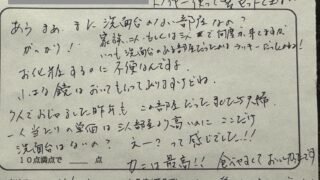 あらまあ まに 洗面台のない部屋なの?
がっかり! 家族 二人 もしくは三人 で何度か 来てますが
いつも洗面台のある部屋だったのでラッキーだったかしら!
お化粧するのに不便なんですよ
小さな鏡はおいてもらってありますけどね。
2人でおじゃました昨年も この部屋だった
一人当たりの単価は三人部屋より高いのに ここだけ
洗面台はないの? えー?って感じでした!!
10点満点で 点 カニは最高!! 食べやすくておいしかったです